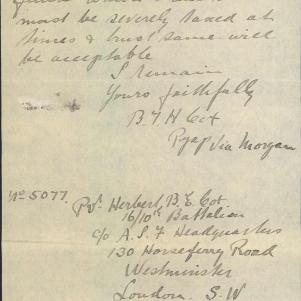 must be severely taxed at
times & trust same will
be acceptable
I Remain
Yours faithfully
B. T H Cox
Pyap Via Morgan
No 5077. Pvt Herbert, B. E. Cox.
16/10th Battalion
C/o A. I. F Headquarters
130 Horseferry Road
Westminster
London. S. W